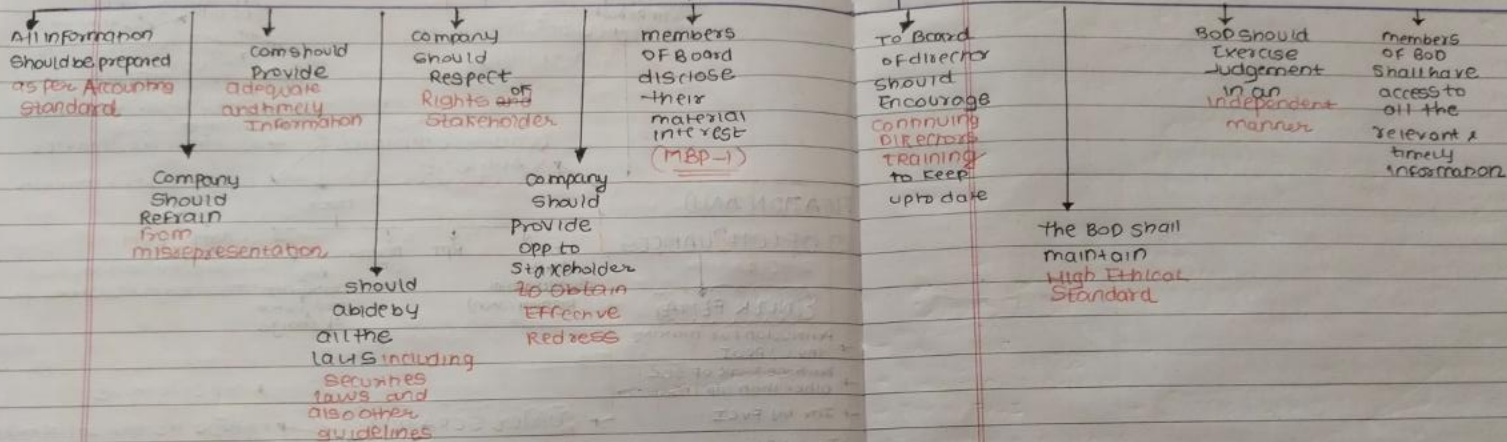 All information
should be prepared
as per Accounting
Standard
Company
Should
Refrain
From
misrepresentation
com should
Provide
adequate
and timely
Information
should
abide by
all the
laws including
securities
laws and
also other
guidelines
company
should
Respect
Rights of
Stakeholder
company
should
Provide
opp to
Stakeholder
to obtain
Effective
Redress
members
OF Board
disclose
their
material
interest
(MBP-1)
To Board
of director
should
Encourage
Continuing
Directors
training
to keep
upto date
the BOD shall
maintain
High Ethical
Standard
BOD should
Exercise
Judgement
in an
independent
manner
members
of BOD
shall have
access to
all the
relevant &
timely
information